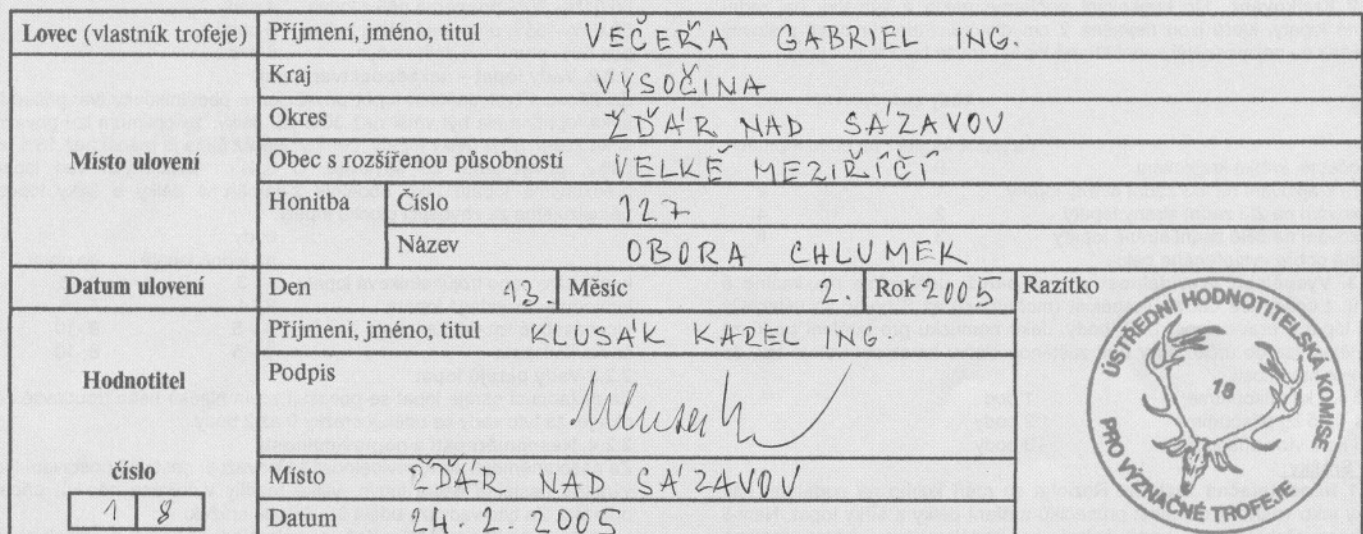 Lovec (vlastník trofeje) Příjmení, jméno, titul VEČEŘA GABRIEL ING.
Místo ulovení
Kraj VYSOČINA
Okres ŽĎÁR NAD SÁZAVOV
Obec s rozšířenou působností VELKÉ MEZIŘÍČÍ
Honitba Číslo 127
Název OBORA CHLUMEK
Datum ulovení Den 13. Měsíc 2. Rok 2005 Razítko
Hodnotitel
Příjmení, jméno, titul KLUSÁK KAREL ING.
Podpis
číslo
1 8
Místo ŽĎÁR NAD SÁZAVOV
Datum 24.2.2005
ÚSTŘEDNÍ HODNOTITELSKÁ KOMISE
18
PRO VÝZNAČNÉ TROFEJE